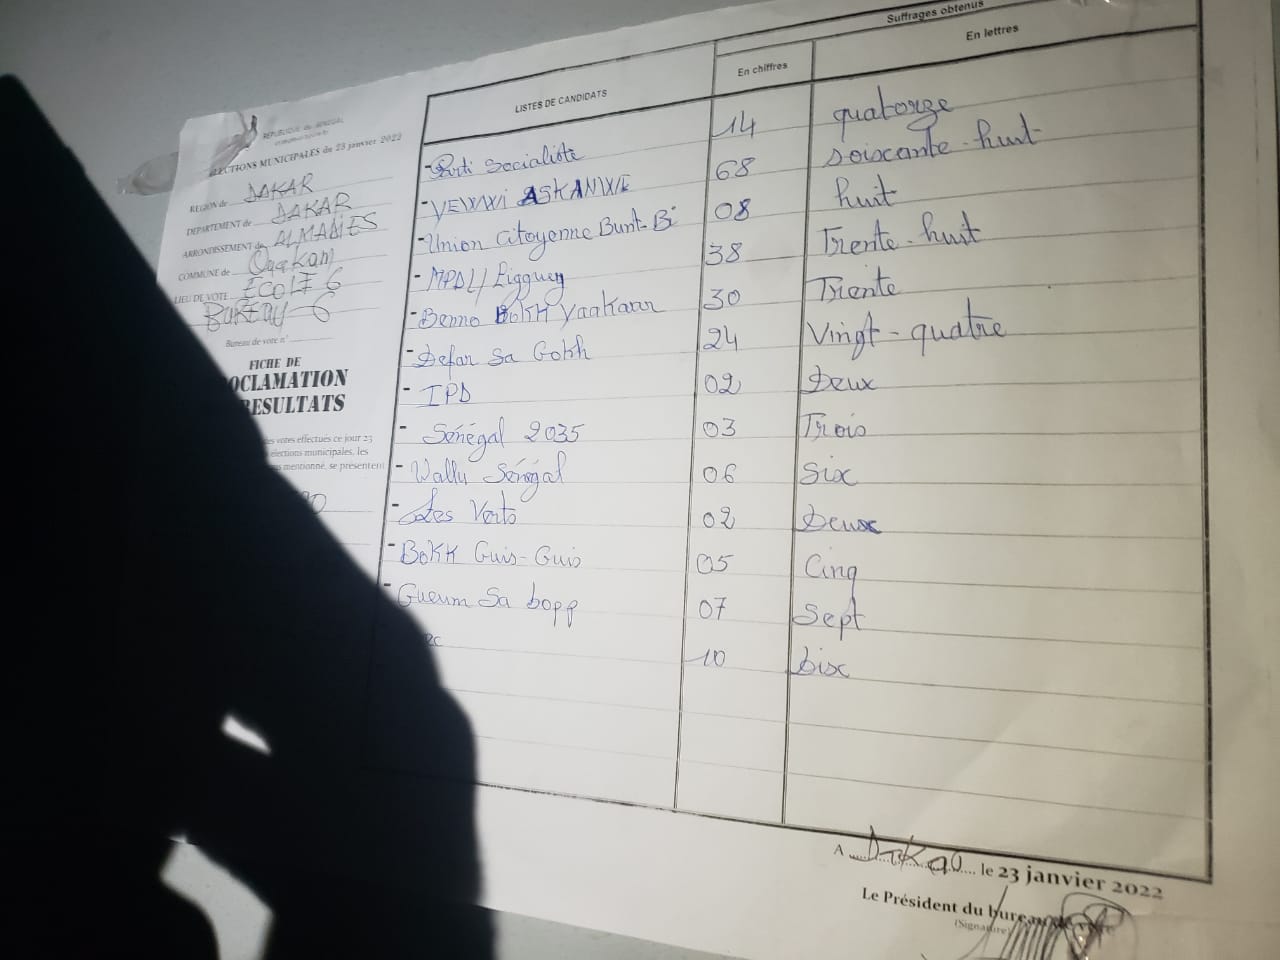 REPUBLIQUE du SENEGAL
ELECTIONS MUNICIPALES du 23 janvier 2022
REGION de DAKAR
DEPARTEMENT de DAKAR
ARRONDISSEMENT de ALMADIES
COMMUNE de Ouakam
LIEU DE VOTE ECOLE 6
BUREAU - 6
Bureau de vote n°
FICHE DE
OCLAMATION
RESULTATS
des votes effectués ce jour 23
élections municipales, les
mentionné, se présentent
Suffrages obtenus
LISTES DE CANDIDATS En chiffres En lettres
- Parti Socialiste 14 quatorze
- YEWWI ASKANWE 68 soixante-huit
- Union Citoyenne Bunt-Bi 08 huit
- MPDL/Ligguey 38 Trente-huit
- Benno BOKK Yaakaar 30 Trente
- Defar Sa Gokh 24 Vingt-quatre
- IPD 02 Deux
- Sénégal 2035 03 Trois
- Wallu Sénégal 06 Six
- Les Verts 02 Deux
- BOKK Guis-Guis 05 Cinq
- Gueum Sa bopp 07 Sept
10 Dix
A Dakar le 23 janvier 2022
Le Président du bureau de vote
(Signature)